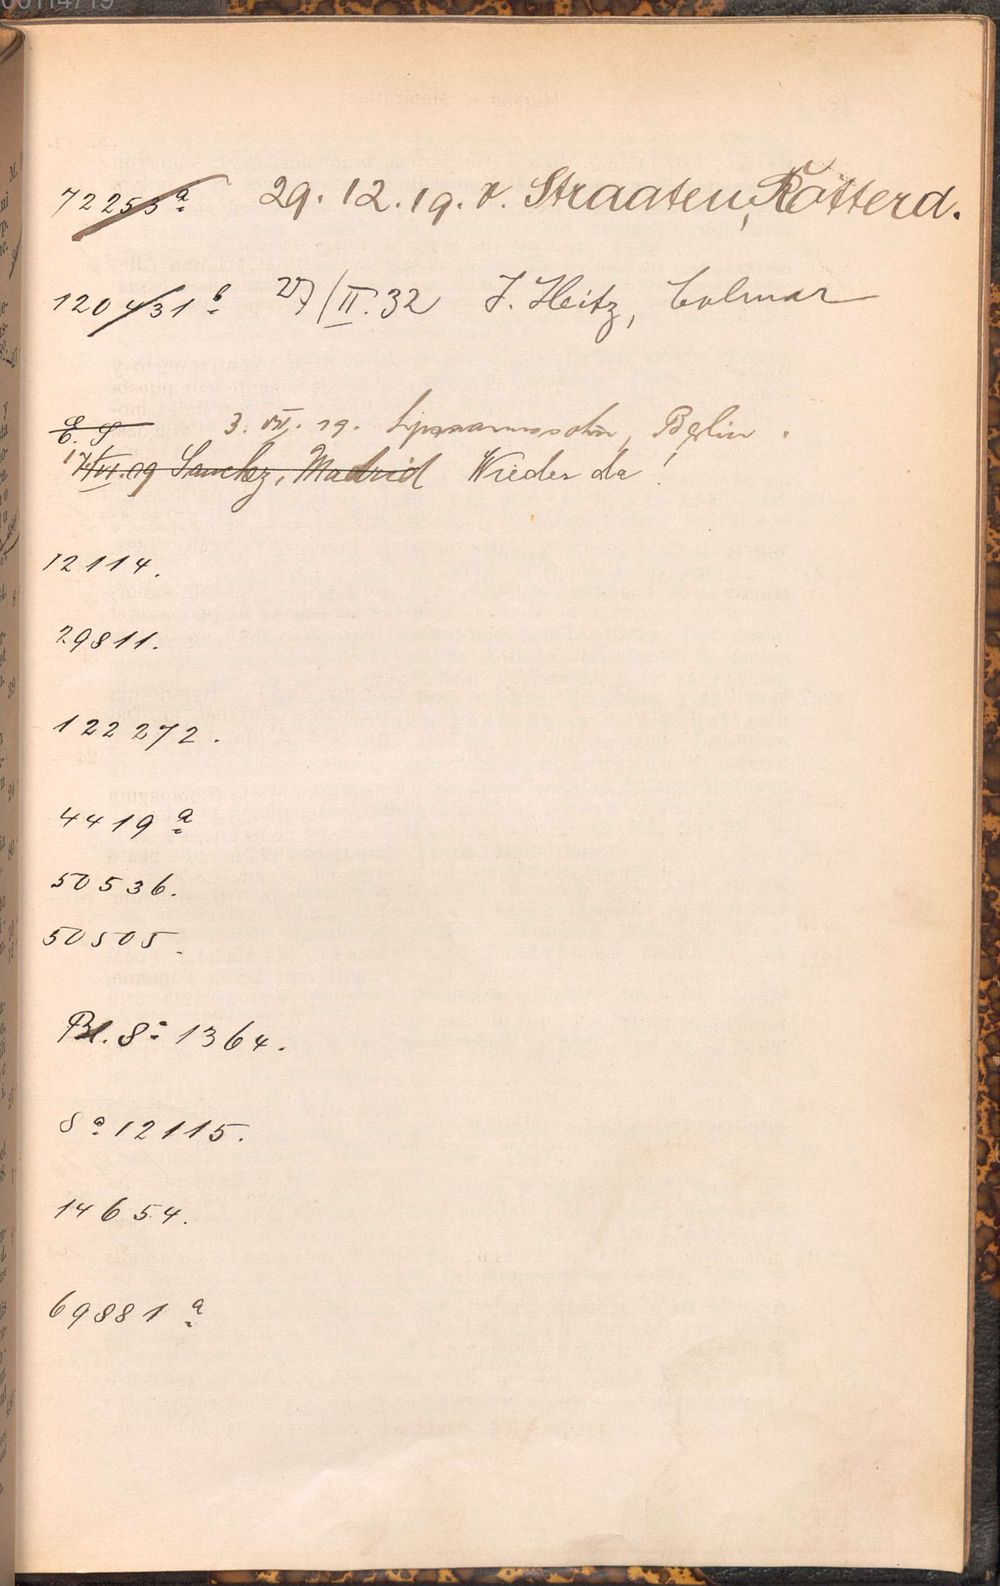 00114719
72253 a. 29. 12. 19. v. Straaten, Rotterd.
120431 b. 27/II. 32 J. Heitz, Colmar
E. S 3. VII. 19. Lipmannssohn, Berlin.
17/VI. 09 Sanchez, Madrid Wieder da!
12114.
29811.
122272.
4419 a
50536.
50505.
Bl. 8: 1364.
8a 12115.
14654.
69881 a